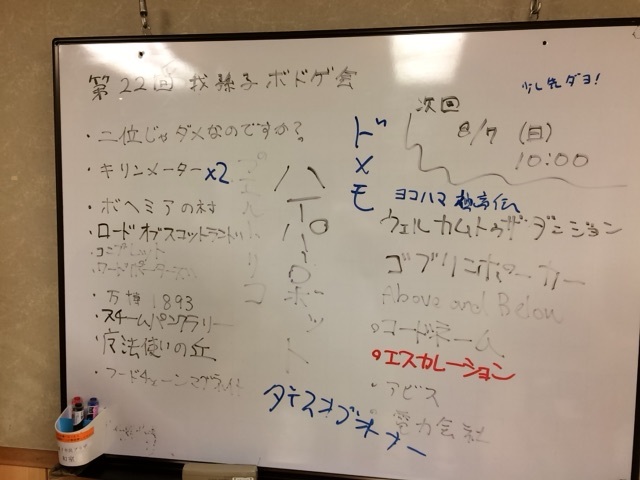 第22回 我孫子ボドゲ会
少し先ダヨ!
次回
8/7 (日)
10:00
・二位じゃダメなのですか?
・キリンメーター×2
・ボヘミアの村
・ロードオブスコットランド
・コンプレット
・ワードポーターガツン
・万博1893
・スチームパンクラリー
・魔法使いの丘
・フードチェーンマグネイト
プエルトリコ
ハイパーロボット
ドメモ
ヨコハマ
ウェルカムトゥザ・ダンジョン
ゴブリンホーカー
Above and Below
コードネーム
エスカレーション
・アビス
電力会社
タテスオブオナー